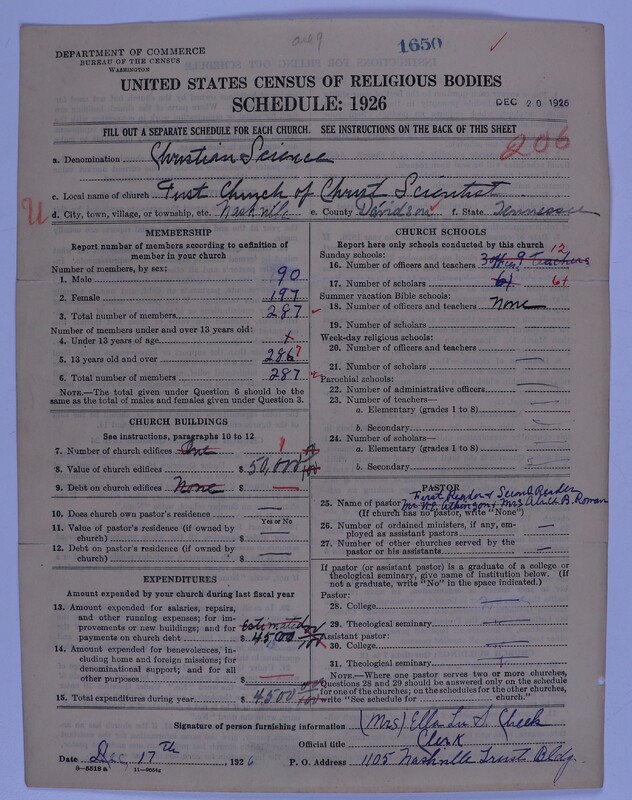 1650
DEPARTMENT OF COMMERCE
BUREAU OF THE CENSUS
WASHINGTON
UNITED STATES CENSUS OF RELIGIOUS BODIES
SCHEDULE: 1926
DEC 20 1926
FILL OUT A SEPARATE SCHEDULE FOR EACH CHURCH. SEE INSTRUCTIONS ON THE BACK OF THIS SHEET
206
a. Denomination Christian Science
c. Local name of church First Church of Christ Scientist
d. City, town, village, or township, etc. Nashville e. County Davidson f. State Tennessee
MEMBERSHIP
Report number of members according to definition of
member in your church
Number of members, by sex:
1. Male 90
2. Female 197
3. Total number of members 287
Number of members under and over 13 years old:
4. Under 13 years of age
5. 13 years old and over 2867
6. Total number of members 287
NOTE.—The total given under Question 6 should be
the same as the total of males and females given under Question 3.
CHURCH BUILDINGS
See instructions, paragraphs 10 to 12
7. Number of church edifices One 1
8. Value of church edifices $ 50,000
9. Debt on church edifices None $
10. Does church own pastor's residence?
Yes or No
11. Value of pastor's residence (if owned by
church) $
12. Debt on pastor's residence (if owned by
church) $
EXPENDITURES
Amount expended by your church during last fiscal year
13. Amount expended for salaries, repairs,
and other running expenses; for im-
provements or new buildings; and for estimated
payments on church debt $ 4500
14. Amount expended for benevolences, in-
cluding home and foreign missions; for
denominational support; and for all
other purposes $
15. Total expenditures during year $ 4500
CHURCH SCHOOLS
Report here only schools conducted by this church
Sunday schools: 12
16. Number of officers and teachers 3 offic. 9 Teachers
17. Number of scholars 61 61
Summer vacation Bible schools:
18. Number of officers and teachers None
19. Number of scholars
Week-day religious schools:
20. Number of officers and teachers
21. Number of scholars
Parochial schools:
22. Number of administrative officers
23. Number of teachers—
a. Elementary (grades 1 to 8)
b. Secondary
24. Number of scholars—
a. Elementary (grades 1 to 8)
b. Secondary
PASTOR
First Reader & Second Reader
25. Name of pastor Mr. Atkinson & Mrs. B. Roman
(If church has no pastor, write "None")
26. Number of ordained ministers, if any, em-
ployed as assistant pastors
27. Number of other churches served by the
pastor or his assistants
If pastor (or assistant pastor) is a graduate of a college or
theological seminary, give name of institution below. (If
not a graduate, write "No" in the space indicated.)
Pastor:
28. College
29. Theological seminary
Assistant pastor:
30. College
31. Theological seminary
NOTE.—Where one pastor serves two or more churches,
Questions 28 and 29 should be answered only on the schedule
for one of the churches; on the schedules for the other churches,
write "See schedule for church.
Signature of person furnishing information (Mrs) Ella Lu S. Cheek
Official title Clerk
Date Dec 17th, 1926 P. O. Address 1105 Nashville Trust Bldg.
8—5518a 11—9054a